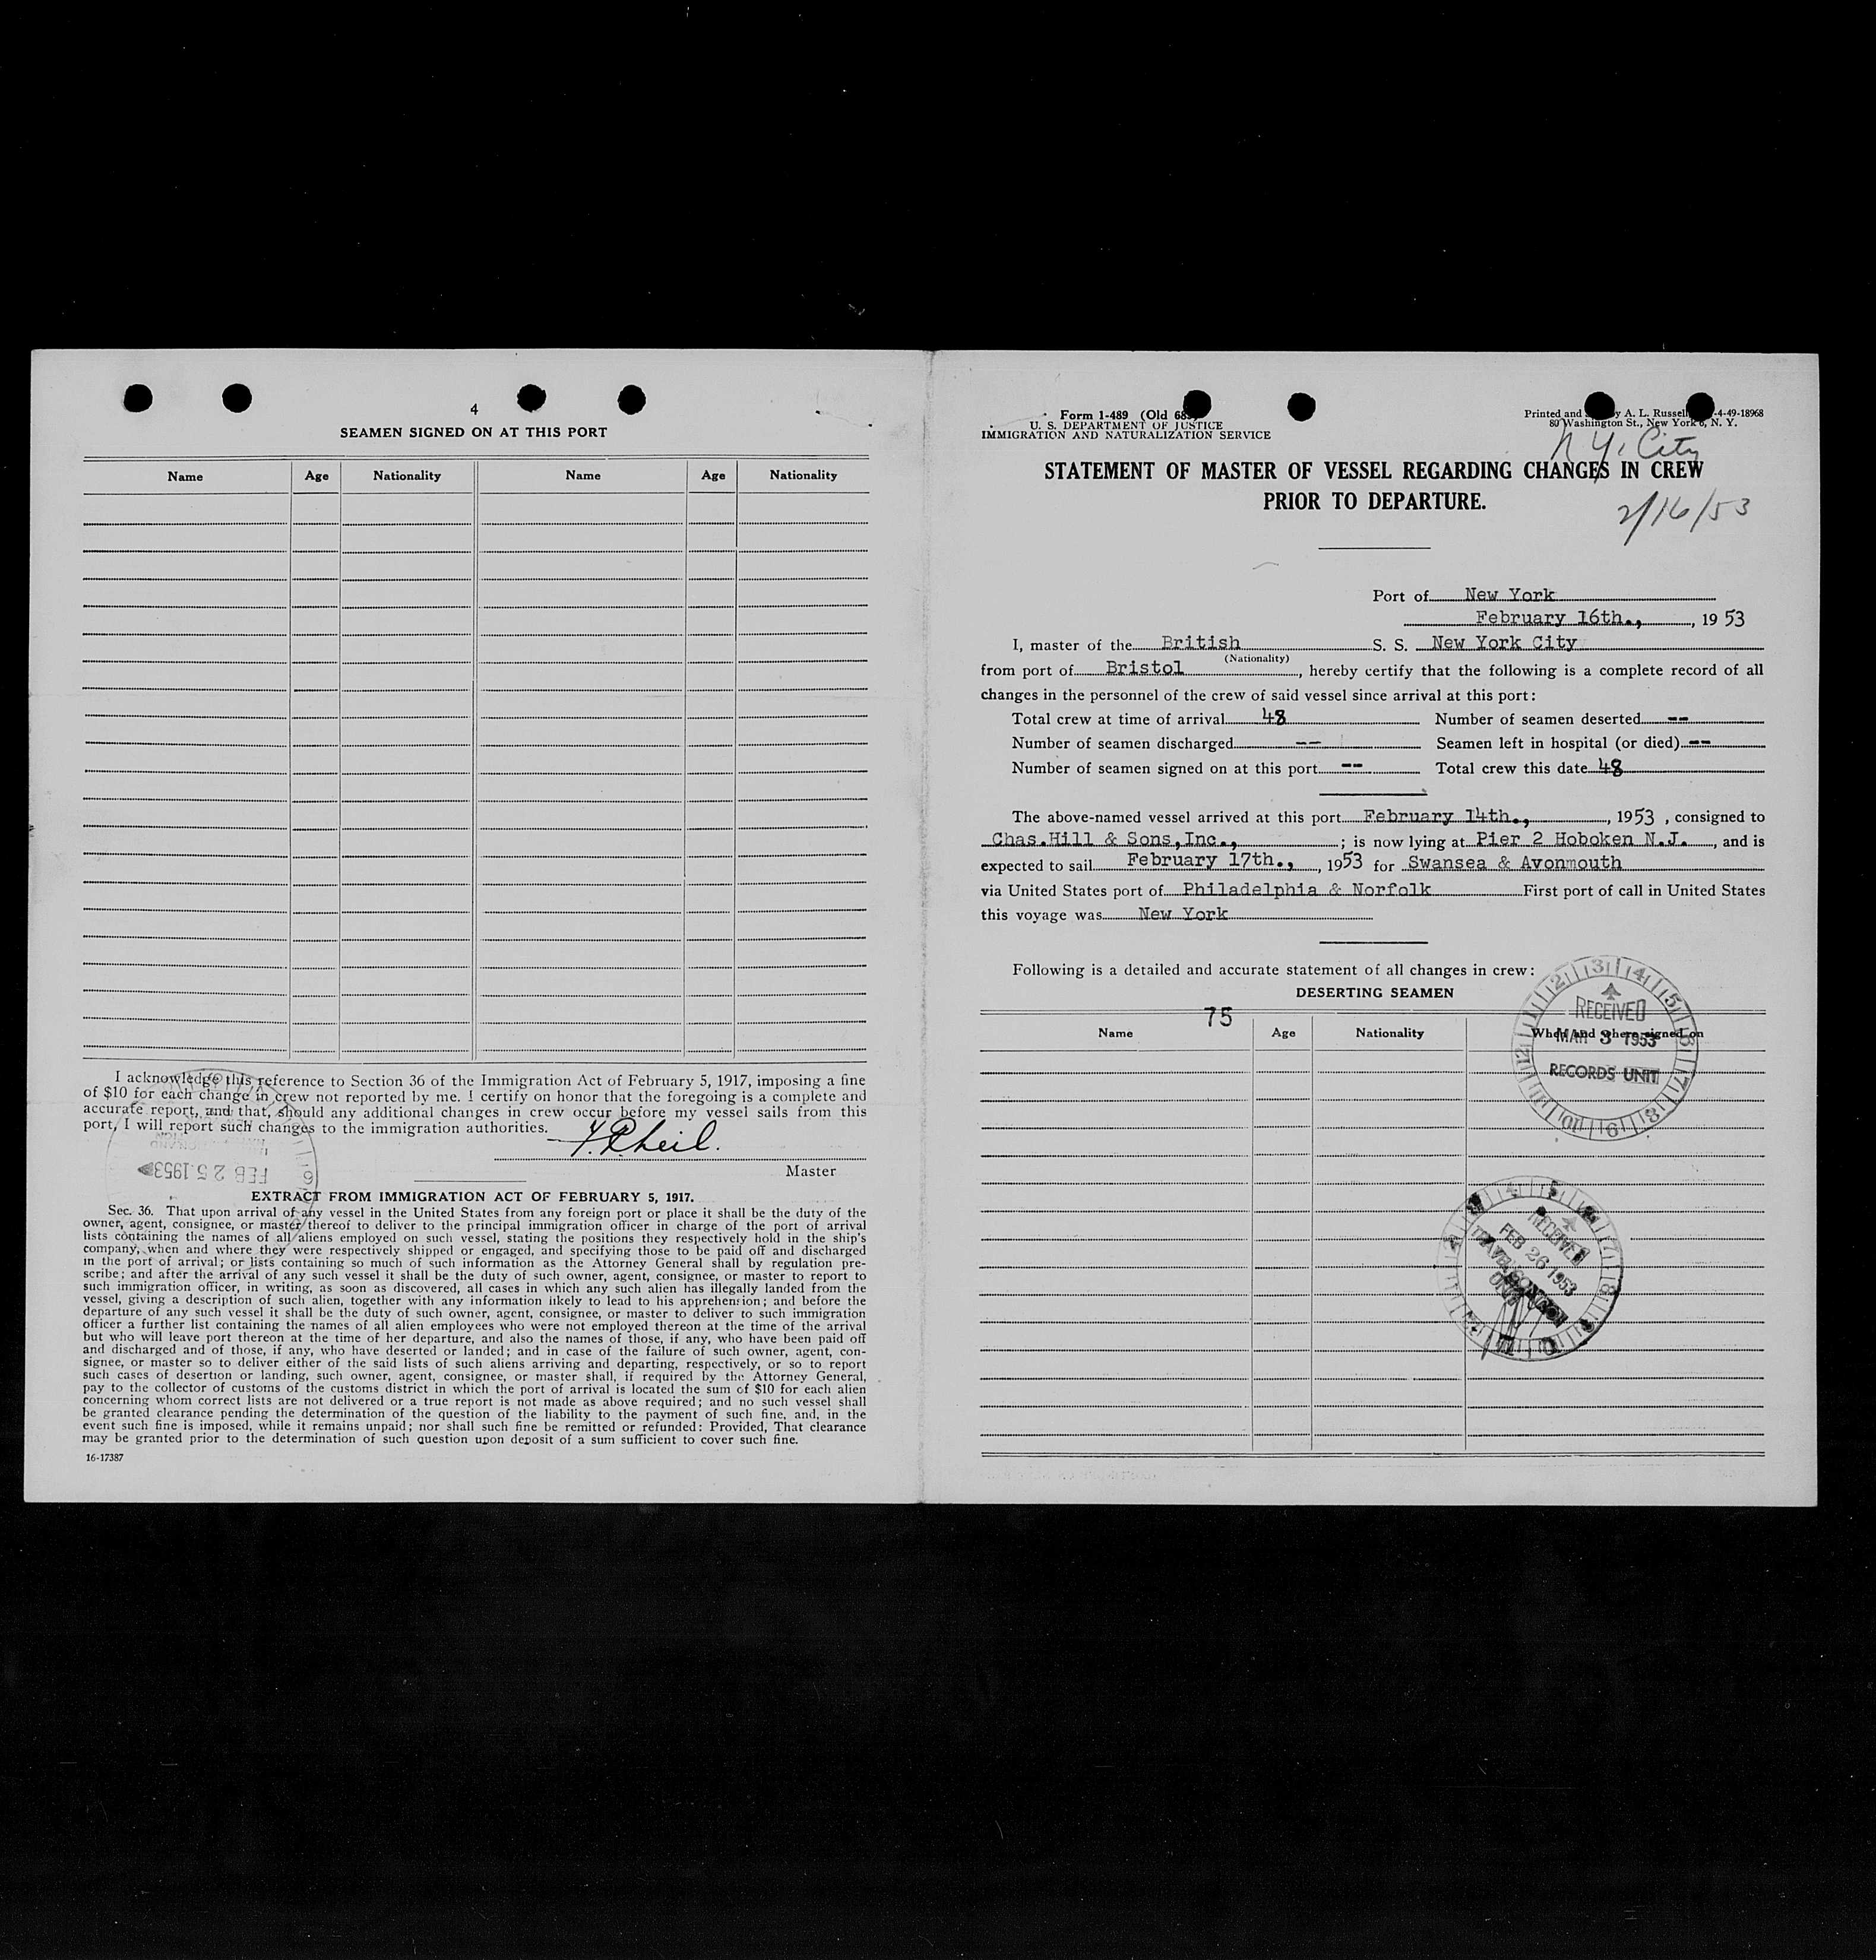 4
SEAMEN SIGNED ON AT THIS PORT
Name Age Nationality Name Age Nationality
I acknowledge this reference to Section 36 of the Immigration Act of February 5, 1917, imposing a fine
of $10 for each change in crew not reported by me. I certify on honor that the foregoing is a complete and
accurate report, and that, should any additional changes in crew occur before my vessel sails from this
port, I will report such changes to the immigration authorities.
Master
FEB 25 1953
EXTRACT FROM IMMIGRATION ACT OF FEBRUARY 5, 1917.
Sec. 36. That upon arrival of any vessel in the United States from any foreign port or place it shall be the duty of the
owner, agent, consignee, or master thereof to deliver to the principal immigration officer in charge of the port of arrival
lists containing the names of all aliens employed on such vessel, stating the positions they respectively hold in the ship's
company, when and where they were respectively shipped or engaged, and specifying those to be paid off and discharged
in the port of arrival; or lists containing so much of such information as the Attorney General shall by regulation pre-
scribe; and after the arrival of any such vessel it shall be the duty of such owner, agent, consignee, or master to report to
such immigration officer, in writing, as soon as discovered, all cases in which any such alien has illegally landed from the
vessel, giving a description of such alien, together with any information likely to lead to his apprehension; and before the
departure of any such vessel it shall be the duty of such owner, agent, consignee, or master to deliver to such immigration
officer a further list containing the names of all alien employees who were not employed thereon at the time of the arrival
but who will leave port thereon at the time of her departure, and also the names of those, if any, who have been paid off
and discharged and of those, if any, who have deserted or landed; and in case of the failure of such owner, agent, con-
signee, or master so to deliver either of the said lists of such aliens arriving and departing, respectively, or so to report
such cases of desertion or landing, such owner, agent, consignee, or master shall, if required by the Attorney General,
pay to the collector of customs of the customs district in which the port of arrival is located the sum of $10 for each alien
concerning whom correct lists are not delivered or a true report is not made as above required; and no such vessel shall
be granted clearance pending the determination of the question of the liability to the payment of such fine, and, in the
event such fine is imposed, while it remains unpaid; nor shall such fine be remitted or refunded: Provided, That clearance
may be granted prior to the determination of such question upon deposit of a sum sufficient to cover such fine.
16-17387
Form 1-489 (Old 68
U. S. DEPARTMENT OF JUSTICE
IMMIGRATION AND NATURALIZATION SERVICE
Printed and y A. L. Russell -4-49-18968
80 Washington St., New York 6, N. Y.
N Y. City
STATEMENT OF MASTER OF VESSEL REGARDING CHANGES IN CREW
PRIOR TO DEPARTURE.
2/16/53
Port of New York
February 16th., , 19 53
I, master of the British S. S. New York City
(Nationality)
from port of Bristol , hereby certify that the following is a complete record of all
changes in the personnel of the crew of said vessel since arrival at this port:
Total crew at time of arrival 48 Number of seamen deserted --
Number of seamen discharged -- Seamen left in hospital (or died) --
Number of seamen signed on at this port -- Total crew this date 48
The above-named vessel arrived at this port February 14th., , 1953 , consigned to
Chas.Hill & Sons,Inc., ; is now lying at Pier 2 Hoboken N.J. , and is
expected to sail February 17th., , 1953 for Swansea & Avonmouth
via United States port of Philadelphia & Norfolk First port of call in United States
this voyage was New York
Following is a detailed and accurate statement of all changes in crew:
DESERTING SEAMEN
75
Name Age Nationality When and where signed on
RECEIVED
MAR 3 1953
RECORDS UNIT
RECEIVED
FEB 26 1953